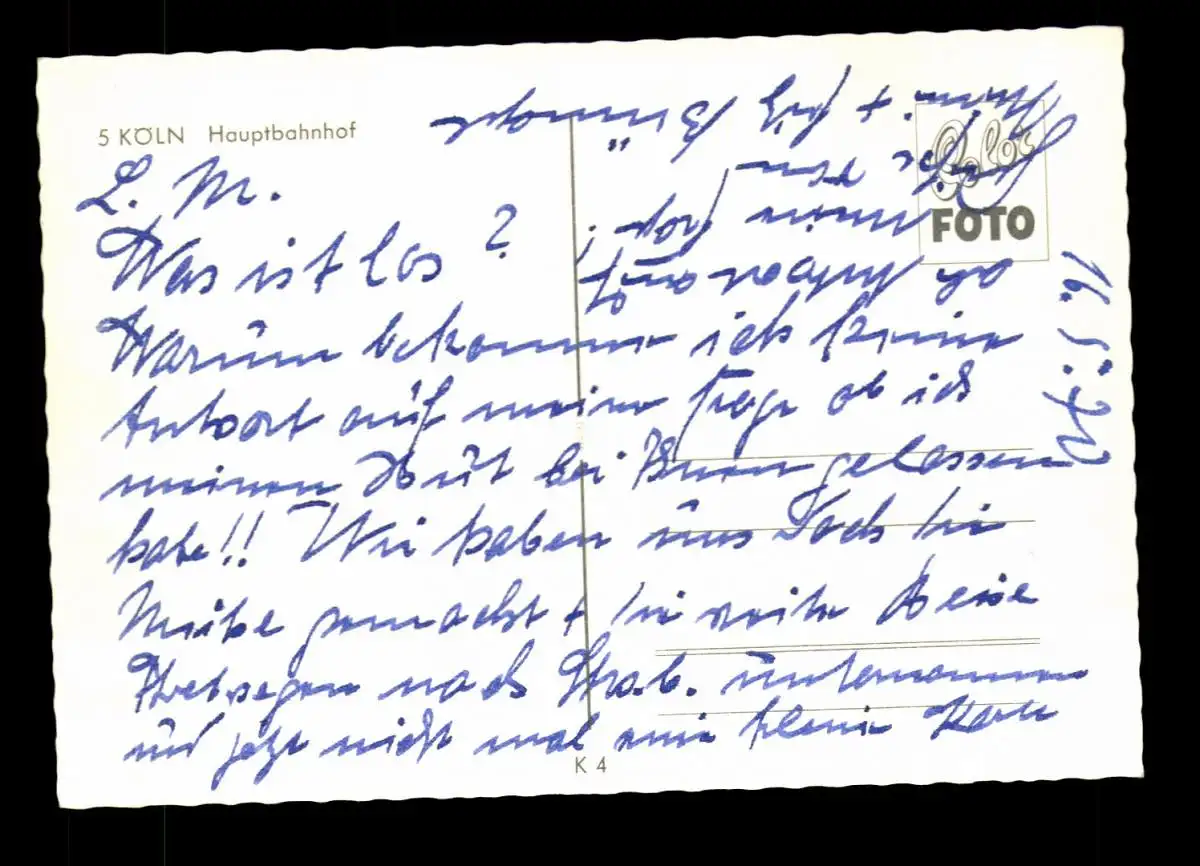 5 KÖLN Hauptbahnhof
L. M.
Was ist los?
Warum bekomme ich keine
Antwort auf meine Frage ob ich
meinen Hut bei Ihnen gelassen
habe!! Wir haben uns doch die
Mühe gemacht + die weite Reise
Ihretwegen nach Strab. unternommen
und jetzt nicht mal eine kleine Karte
als Antwort auf
meine Frage!
von
+
16. 5. 72
Color
FOTO
K 4